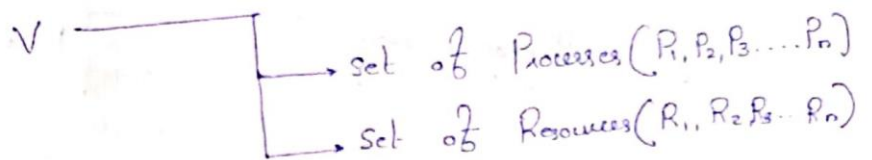 V
set of Processes (P1, P2, P3.....Pn)
set of Resources (R1, R2 R3.. Rn)